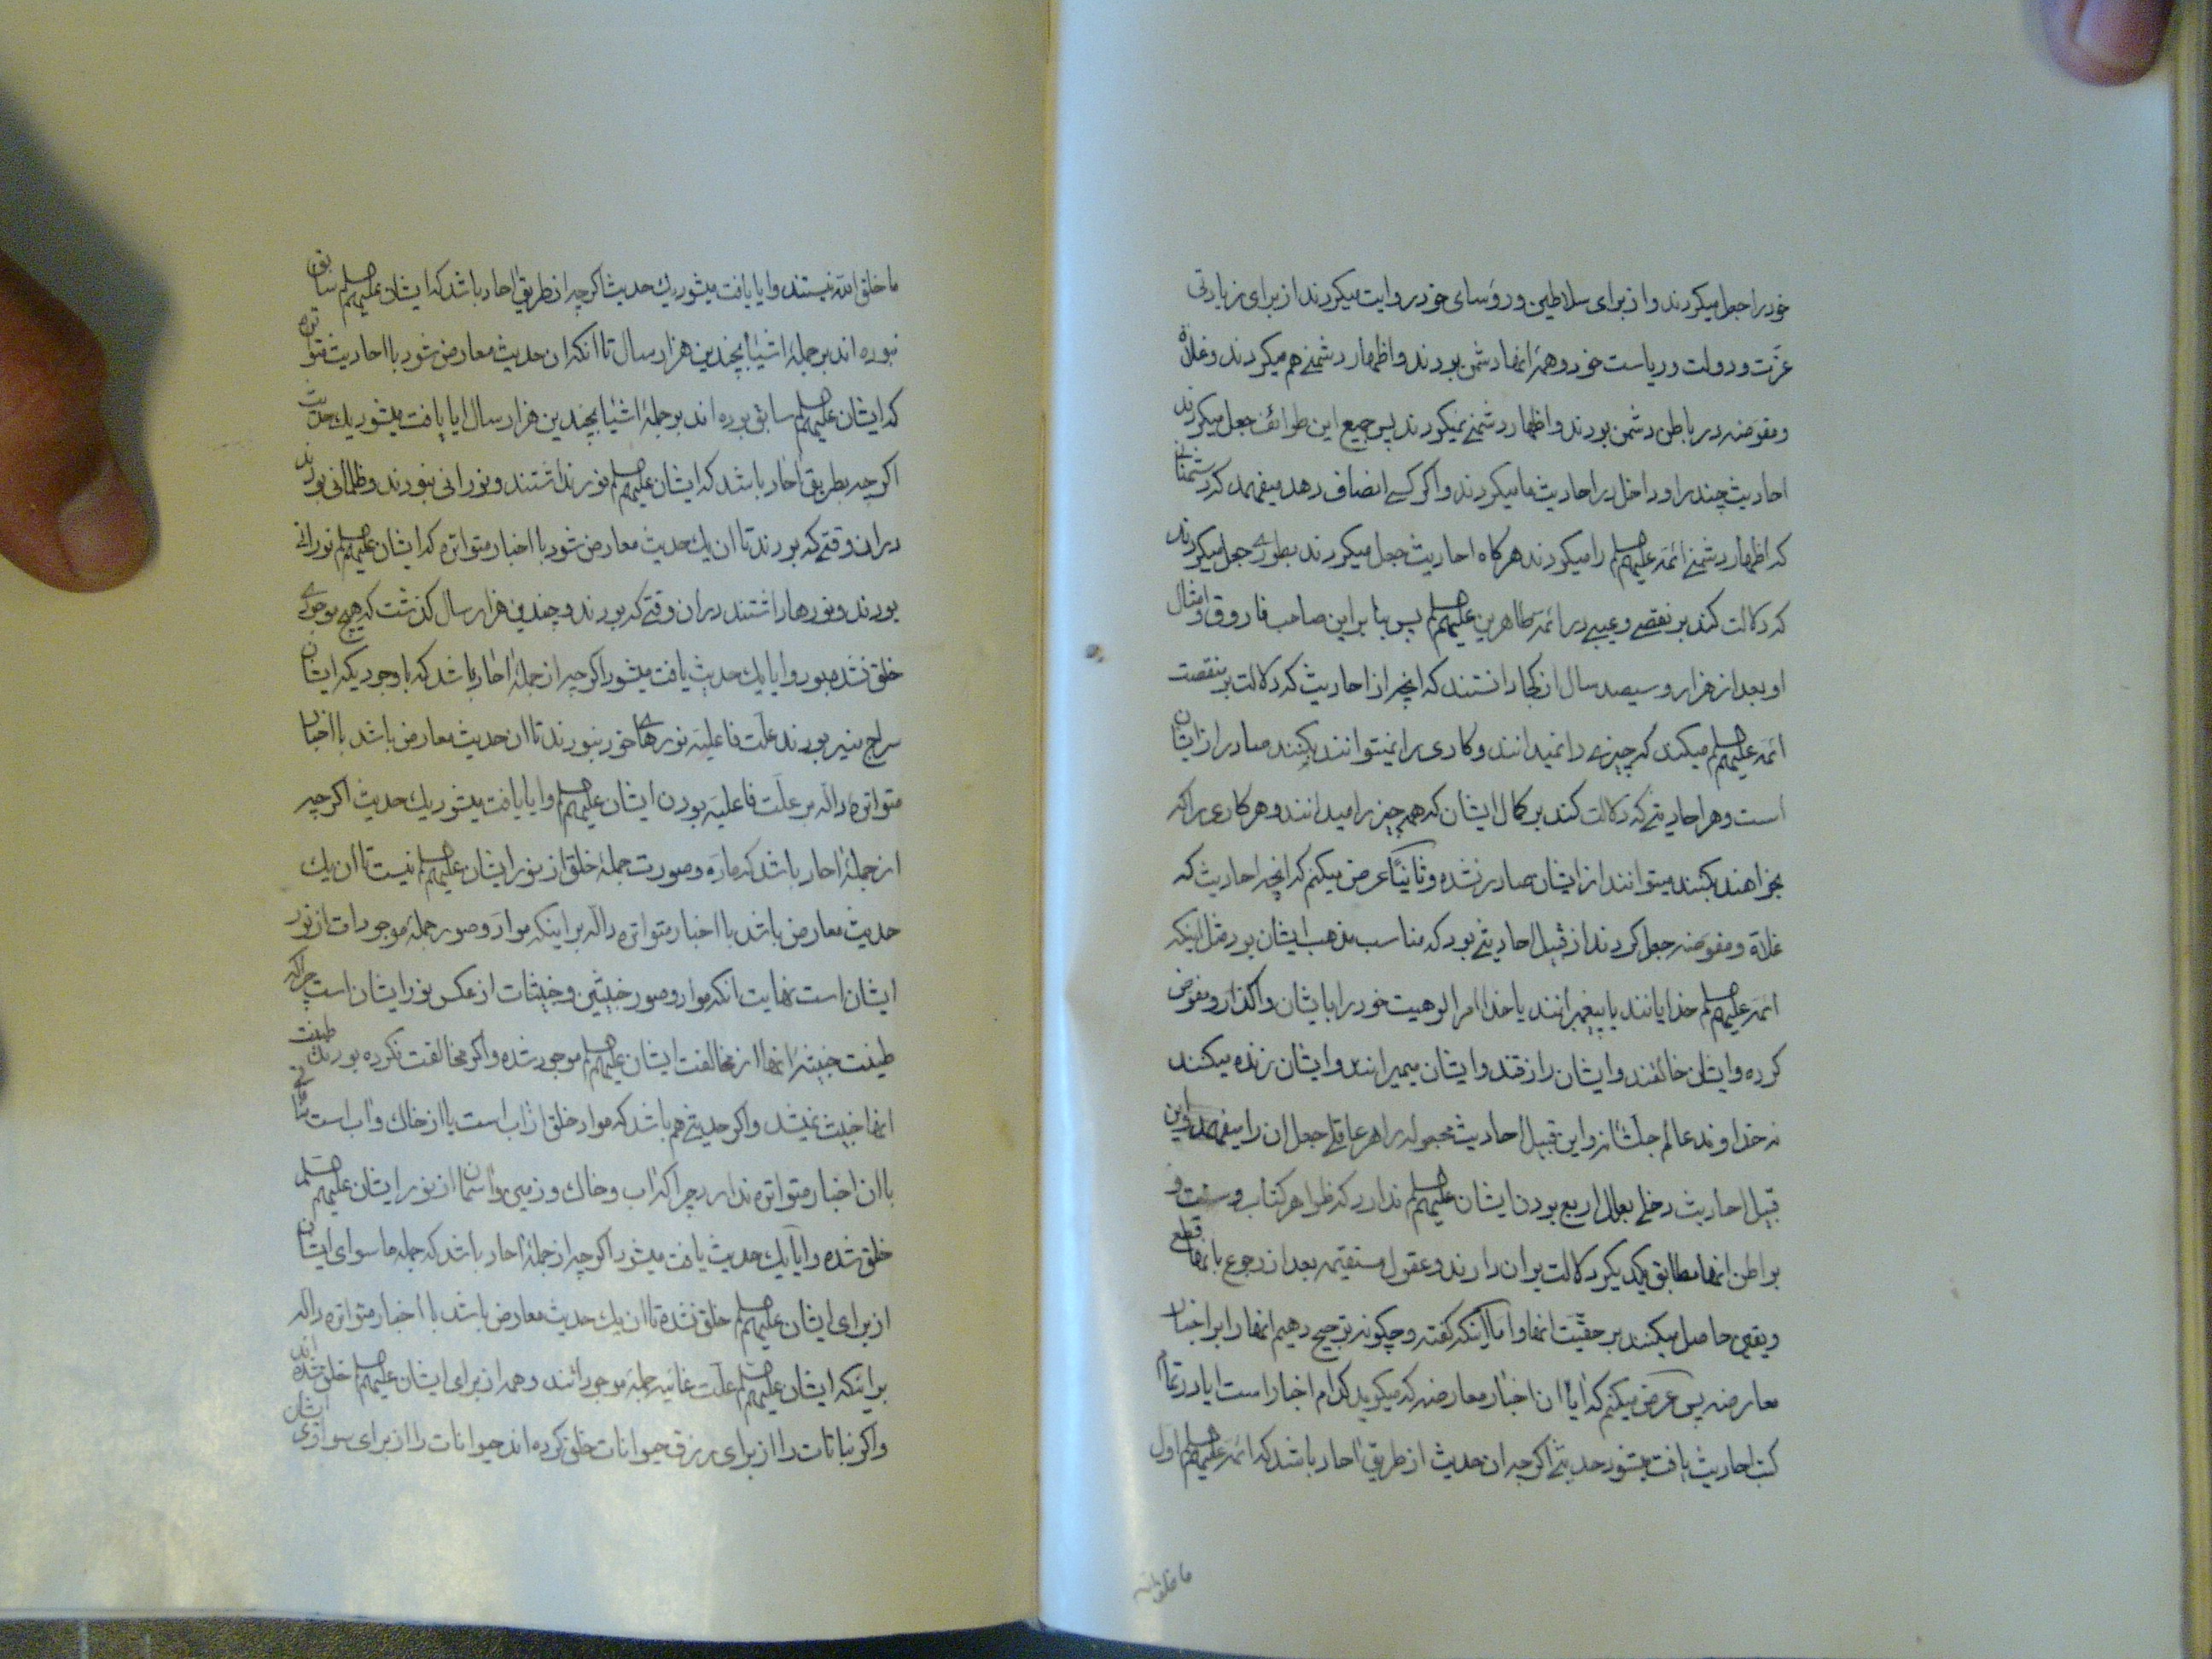 خود را جعل میکردند و از برای سلاطین و رؤسای خود روایت میکردند از برای زیادتی
عزت و دولت و ریاست خود و همهٔ انها دشمن بودند و اظهار دشمنے هم میکردند و غلاة
و مفوضه در باطن دشمن بودند و اظهار دشمنے نمیکردند پس جمیع این طوائف جعل میکردند
احادیث چند را و داخل در احادیث ما میکردند و اکر کسے انصاف دهد میفهمد که دشمنان
که اظهار دشمنے ائمه علیهم را میکردند هرکاه احادیث جعل میکردند بطورے جعل میکردند
که دلالت کند بر نقصے و عیبے در ائمهٔ طاهرین علیهم پس بنا براین صاحب فاروق و امثال
او بعد از هزار و سیصد سال از کجا دانستند که انچه از احادیث که دلالت بر منقصت
ائمه علیهم میکند که چیزے را نمیدانند و کاری را نمیتوانند بکنند صادر از ایشان
است و هر احادیثے که دلالت کند بر کمال ایشان که همه چیز را میدانند و هر کاری را که
بخواهند بکنند میتوانند از ایشان صادر نشده و ثانیًا عرض میکنم که انچه احادیث که
غلاة و مفوضه جعل کردند از قبیل احادیثے بود که مناسب مذهب ایشان بود مثل اینکه
ائمه علیهم خدایانند یا پیغمبرانند یا خدا امر الوهیت خود را بایشان واکذارد و مفوض
کرده و ایشان خالقند و ایشان رازقند و ایشان میمیرانند و ایشان زنده میکنند
نه خداوند عالم جلشانه و این قبیل احادیث مجعوله را هر عاقلے جعل ان را میفهمد و این
قبیل احادیث دخلے بعلل اربع بودن ایشان علیهم ندارد که ظواهر کتاب و سنت و
بواطن انها مطابق یکدیکر دلالت بران دارند و عقول مستقیمه بعد از رجوع بانها قطع
و یقین حاصل میکنند بر حقیت انها و اما اینکه کفته و چکونه ترجیح دهیم انها را بر اخبار
معارضه پس عرض میکنم که ایا ان اخبار معارضه که میکوید کدام اخبار است ایا در تمام
کتب احادیث یافت میشود حدیثے اکرچه ان حدیث از طریق احاد باشد که ائمه علیهم اول
ما خلق الله
ما خلق الله نیستند و ایا یافت میشود یك حدیث اکرچه از طریق احاد باشد که ایشان علیهم سابق
نبوده اند بر جملهٔ اشیا بچندین هزار سال تا انکه ان حدیث معارض شود با احادیث متواتره
که ایشان علیهم سابق بوده اند بر جملهٔ اشیا بچندین هزار سال ایا یافت میشود یك حدیث
اکرچه بطریق احاد باشد که ایشان علیهم نور نداشتند و نورانی نبودند و ظلمانی بودند
در ان وقتے که بودند تا ان یك حدیث معارض شود با اخبار متواتره که ایشان علیهم نورانے
بودند و نورها داشتند در ان وقتے که بودند و چندین هزار سال کذشت که هیچ موجودے
خلق نشده بود و ایا یك حدیث یافت میشود اکرچه از جملهٔ احاد باشد که با وجودیکه ایشان
سراج منیر بودند علت فاعلیه نورهاے خود نبودند تا ان حدیث معارض باشد با اخبار
متواترهٔ داله بر علت فاعلیه بودن ایشان علیهم و ایا یافت میشود یك حدیث اکرچه
از جملهٔ احاد باشد که ماده و صورت جملهٔ خلق از نور ایشان علیهم نیست تا ان یك
حدیث معارض باشد با اخبار متواتره داله بر اینکه مواد و صور جملهٔ موجودات از نور
ایشان است نهایت انکه مواد و صور خبیثین و خبیثات از عکس نور ایشان است چراکه
طینت خبیثهٔ انها از مخالفت ایشان علیهم موجود شده و اکر مخالفت نکرده بودند طینت
انها خبیث نمیشد و اکر حدیثے هم باشد که مواد خلق از اب است یا از خاك و اب است منافاتے
با ان اخبار متواتره ندارد چراکه اب و خاك و زمین و اسمان از نور ایشان علیهم
خلق شده و ایا یك حدیث یافت میشود اکرچه از جملهٔ احاد باشد که جمله ما سوای ایشان
از برای ایشان علیهم خلق نشده تا ان یك حدیث معارض باشد با اخبار متواتره داله
بر اینکه ایشان علیهم علت غائیه جملهٔ موجوداتند و همه از برای ایشان علیهم خلق شده اند
و اکر نباتات را از برای رزق حیوانات خلق کرده اند حیوانات را از برای سواری ایشان